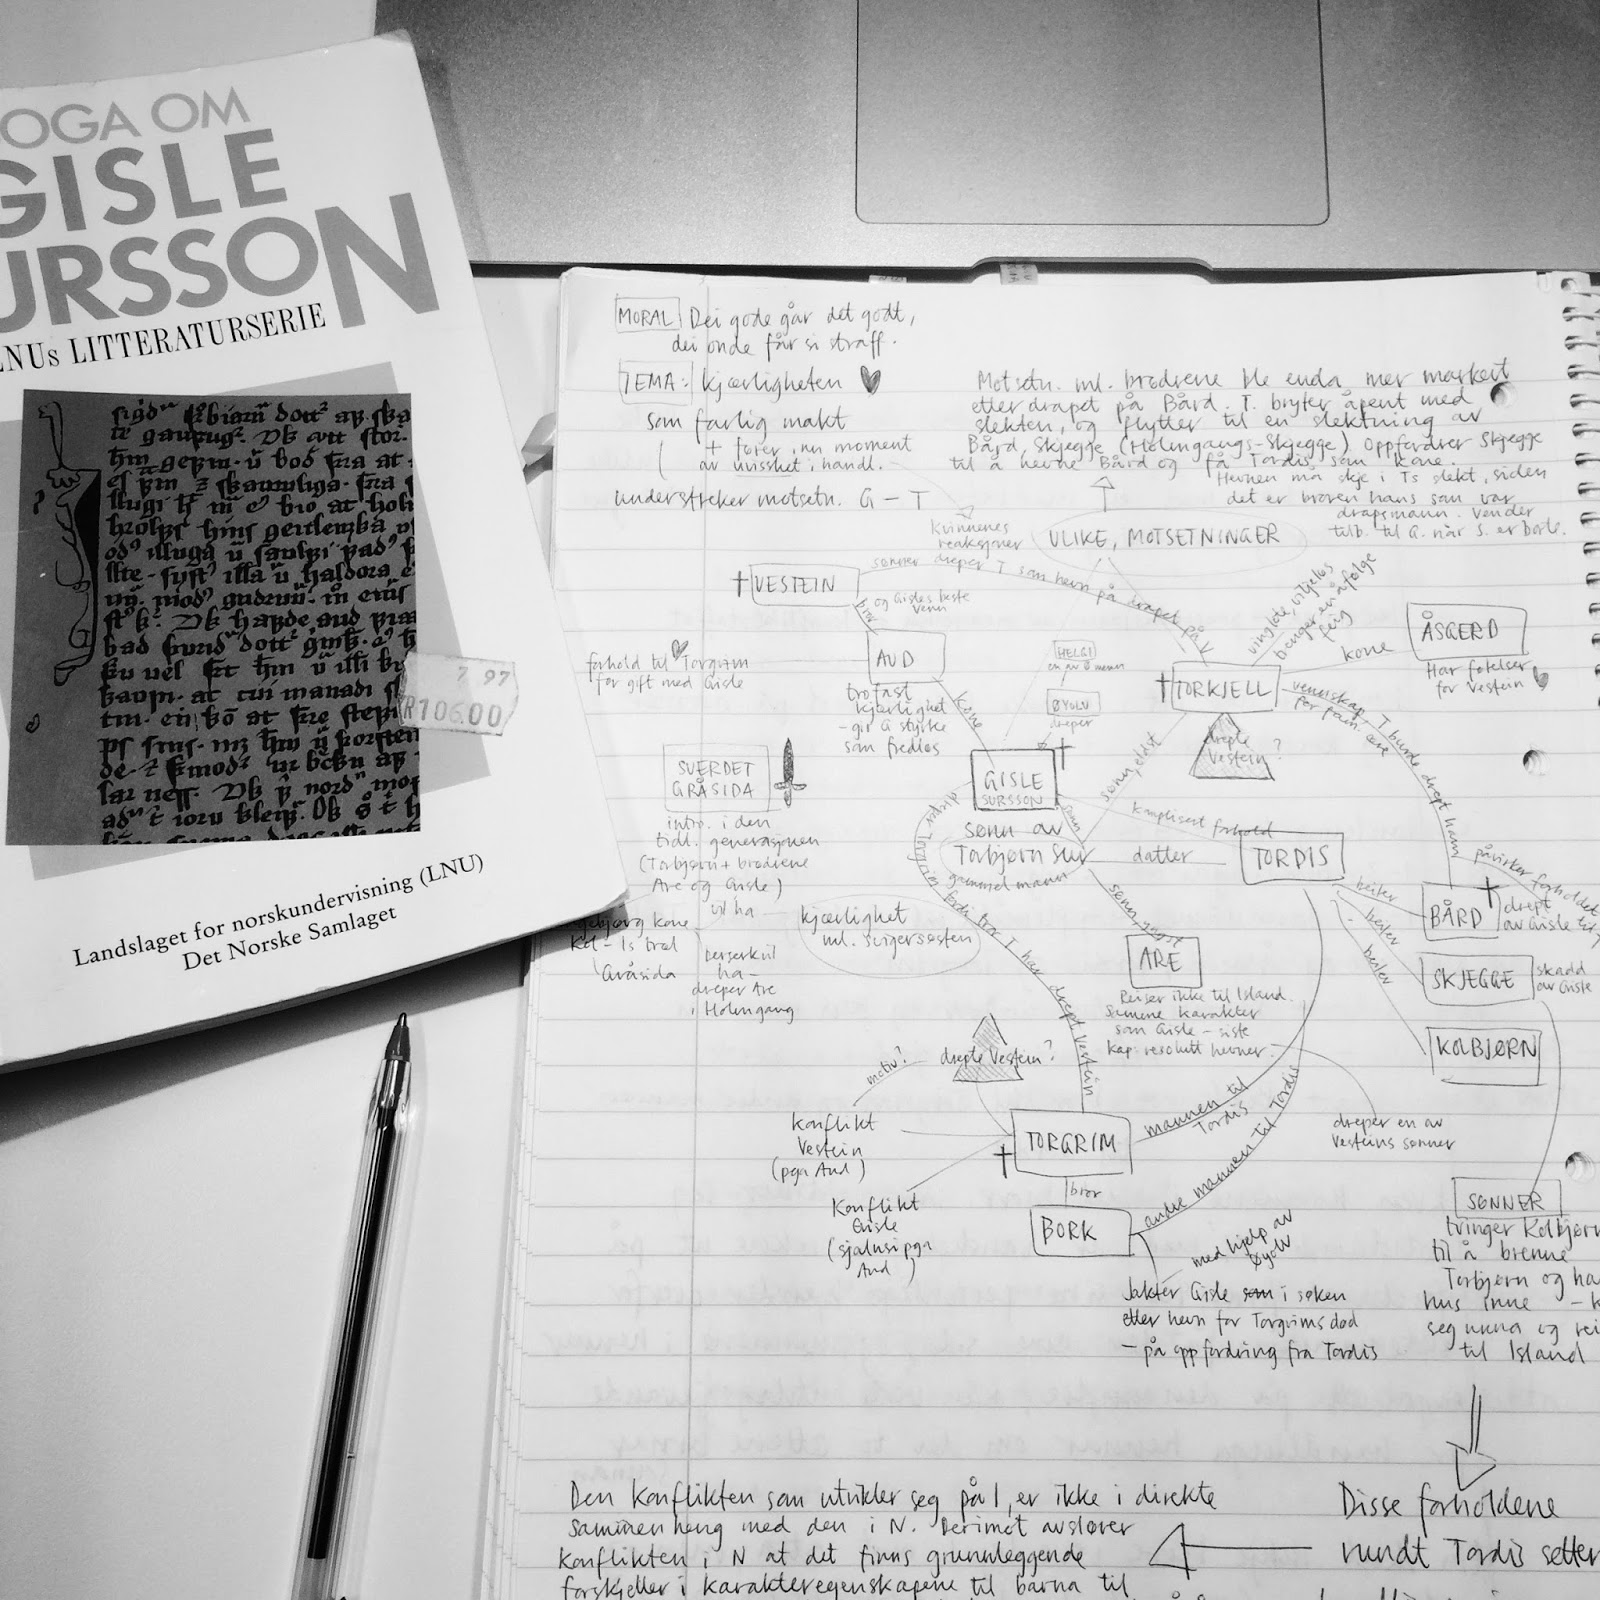 OGA OM
GISLE
URSSON
LNUs LITTERATURSERIE
7 97
R106.00
Landslaget for norskundervisning (LNU)
Det Norske Samlaget
MORAL Dei gode går det godt,
dei onde får si straff.
TEMA: kjærligheten
som farlig makt
+ fører inn moment
av uvisshet i handl.
understreker motsetn. G – T
Motsetn. ml. brødrene ble enda mer markert
etter drapet på Bård. T. bryter åpent med
slekten, og flytter til en slektning av
Bård, Skjegge (Holmgangs-Skjegge) Oppfordrer Skjegge
til å hevne Bård og få Tordis som kone.
Hevnen må skje i Ts slekt, siden
det er broren hans som var
drapsmann. Vender
tilb. til G. når S. er borte.
kvinnenes
reaksjoner
ULIKE, MOTSETNINGER
VESTEIN
sønner dreper T som hevn på drapet på V
bror
og Gisles beste
venn
AUD
forhold til Torgrim
før gift med Gisle
trofast
kjærlighet
- gir G styrke
som fredløs
kone
HELGI
en av Ø menn
ØYOLV
dreper
TORKJELL
vinglete, viljeløs
feig
kone
ÅSGERD
Har følelser
for Vestein
drepte
Vestein?
vennskap, T burde drept ham
for fam. ære
påvirker forholdet
SVERDET
GRÅSIDA
intro. i den
tidl. generasjonen
(Torbjørn + brødrene
Are og Gisle)
vil ha
kjærlighet
ml. svigersøsken
Ingebjørg kone
Kol – Is træl
Gråsida
berserkvil
ha –
dreper Are
i Holmgang
GISLE
SURSSON
sønn av
Torbjørn Sur
gammel mann
sønn
sønn, eldst
komplisert forhold
datter
TORDIS
dreper Torgrim fordi tror T har drept Vestein
sønn, yngst
ARE
Reiser ikke til Island.
Samme karakter
som Gisle – siste
kap: resolutt hevner.
dreper en av
Vesteins sønner
beiler
BÅRD
drept
av Gisle
beiler
SKJEGGE
skadd
av Gisle
beiler
KOLBJØRN
motiv?
drepte Vestein?
Konflikt
Vestein
(pga Aud)
TORGRIM
mannen til
Tordis
Konflikt
Gisle
(sjalusi pga
Aud)
bror
BORK
andre mannen til Tordis
med hjelp av
Øyolv
Jakter Gisle som i søken
etter hevn for Torgrims død
– på oppfordring fra Tordis
SØNNER
tvinger Kolbjørn
til å brenne
Torbjørn og ha
hus inne –
seg unna og rei
til Island
Den konflikten som utvikler seg på I, er ikke i direkte
sammenheng med den i N. Derimot avslører
konflikten i N at det finns grunnleggende
forskjeller i karakteregenskapene til barna til
Disse forholdene
rundt Tordis setter